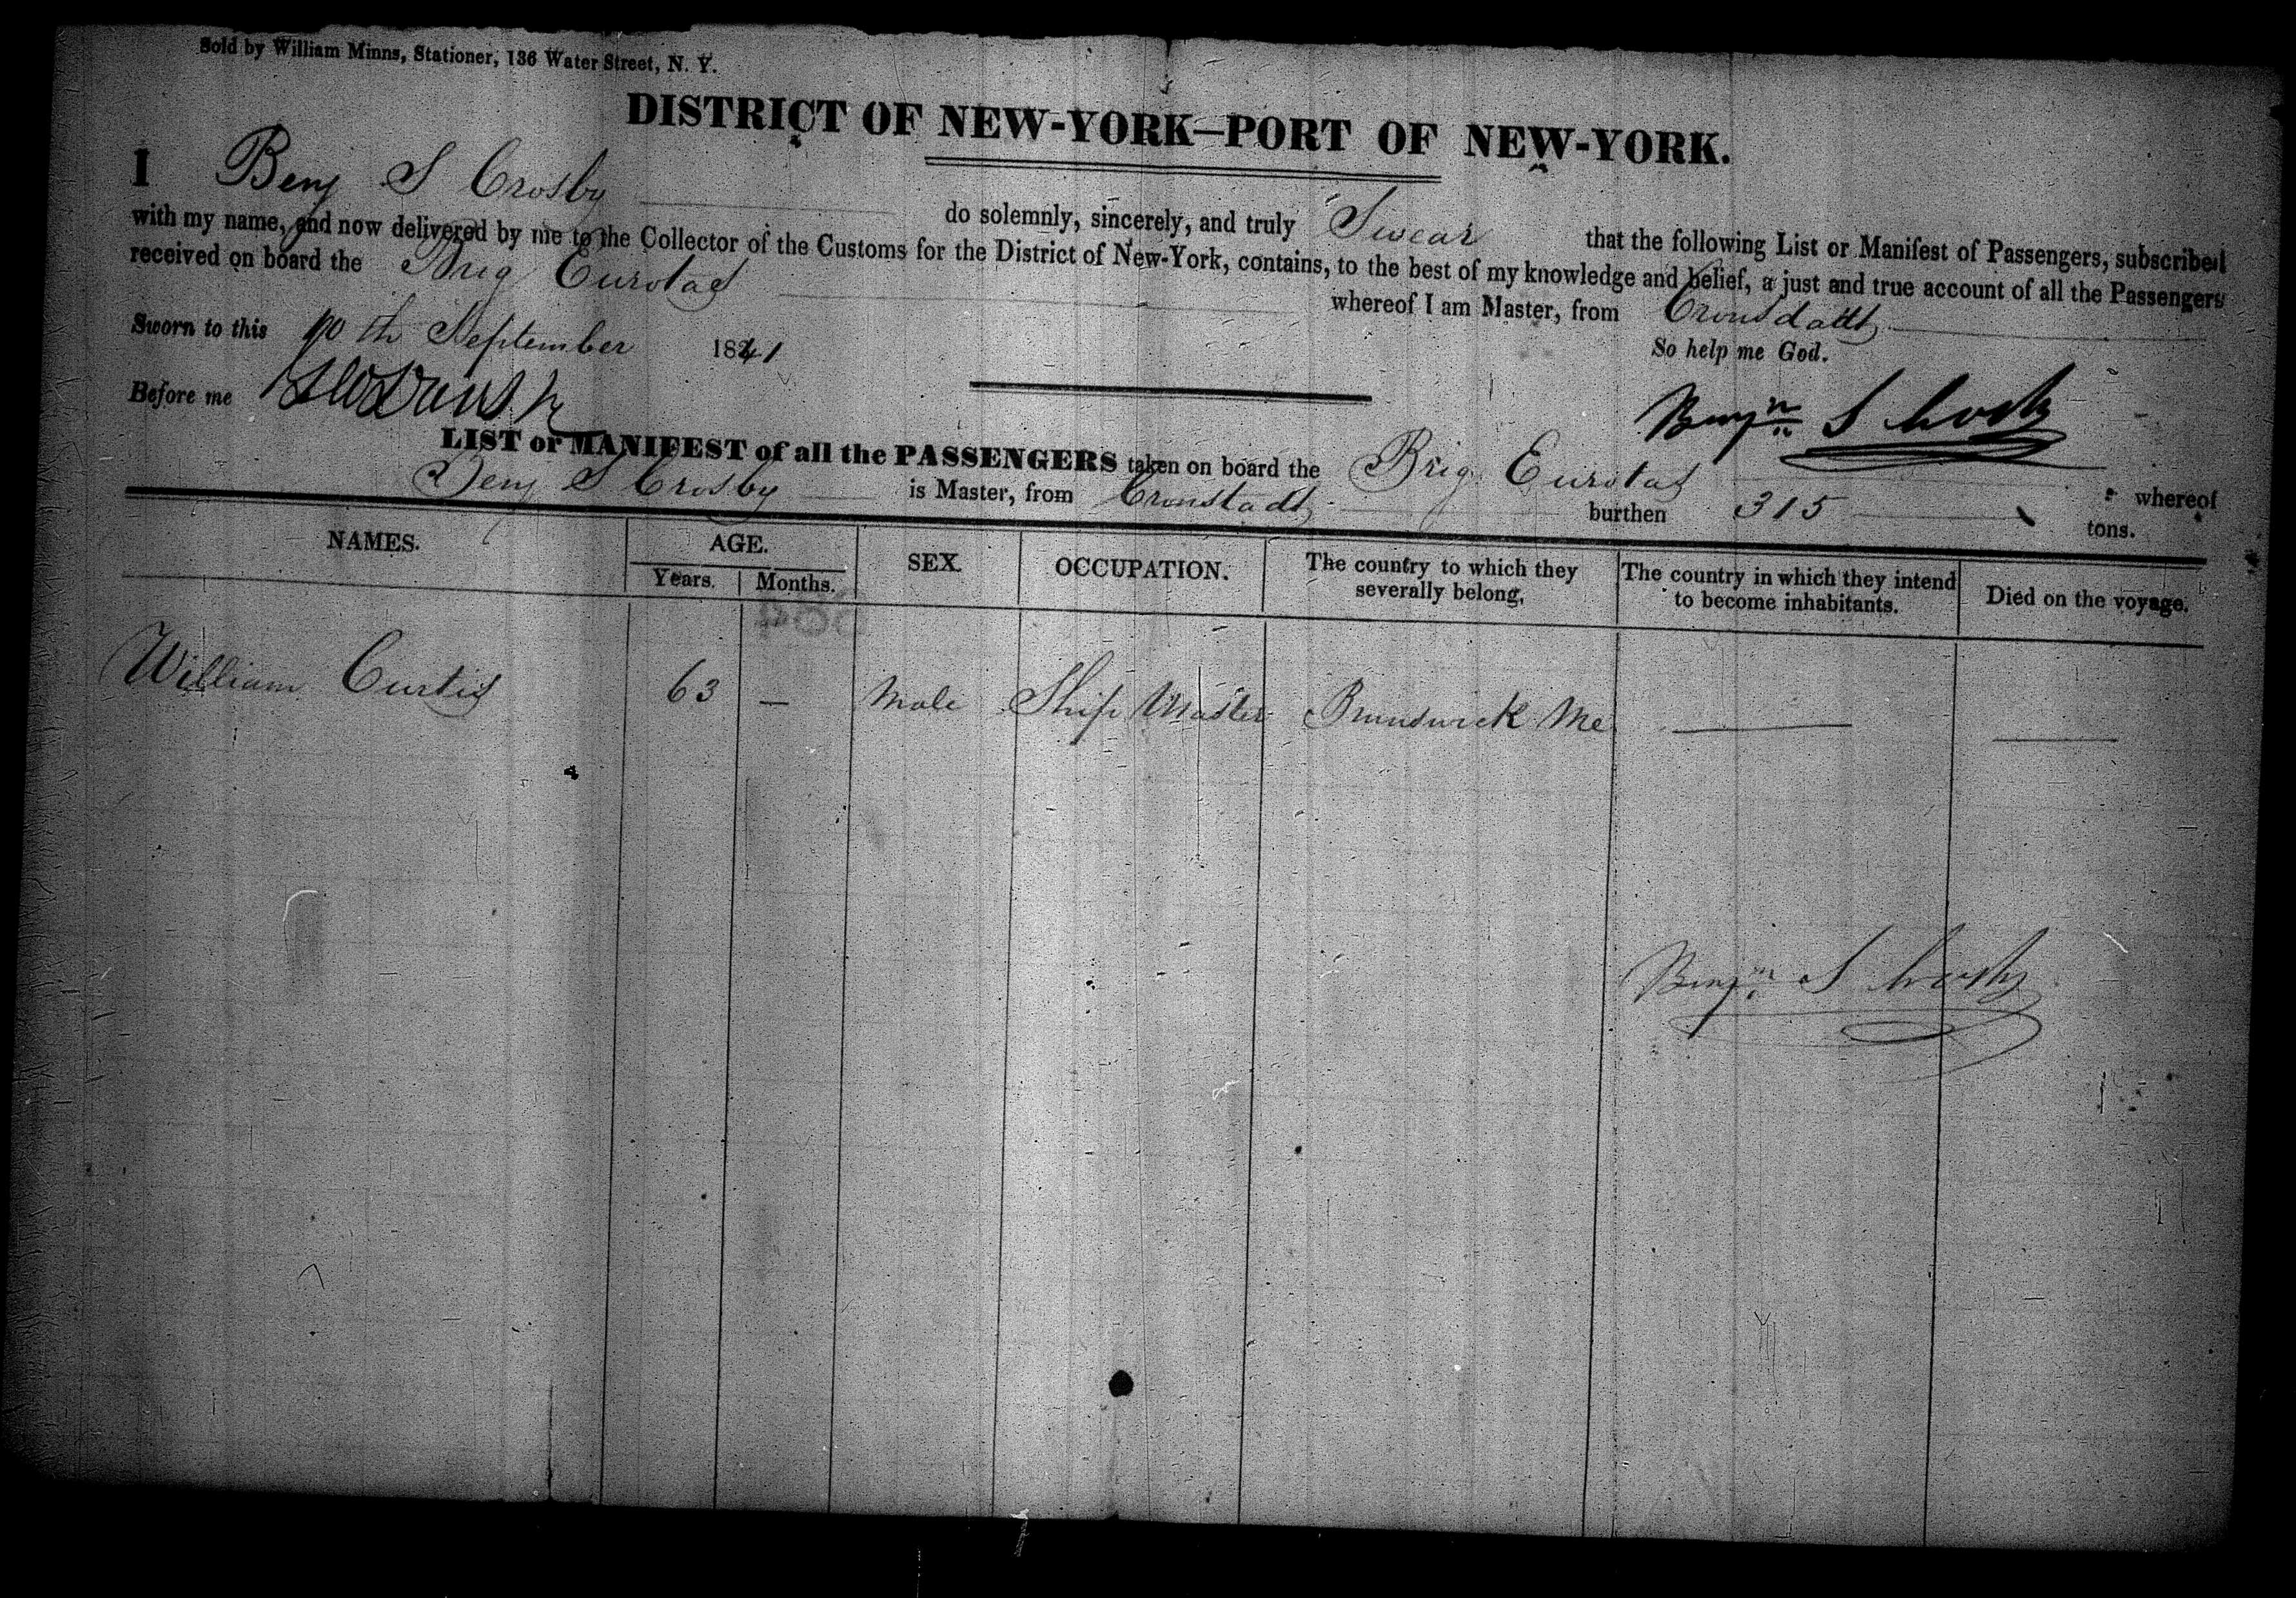 Sold by William Minns, Stationer, 136 Water Street, N. Y.
DISTRICT OF NEW-YORK—PORT OF NEW-YORK.
I Benj S Crosby do solemnly, sincerely, and truly Swear that the following List or Manifest of Passengers, subscribed
with my name, and now delivered by me to the Collector of the Customs for the District of New-York, contains, to the best of my knowledge and belief, a just and true account of all the Passengers
received on board the Brig Eurotas whereof I am Master, from Cronstadt
Sworn to this th September 1841 So help me God.
Before me Benjn S Crosby
LIST or MANIFEST of all the PASSENGERS taken on board the Brig Eurotas whereof
Benj S Crosby is Master, from Cronstadt burthen 315 tons.
NAMES. AGE. SEX. OCCUPATION. The country to which they severally belong, The country in which they intend to become inhabitants. Died on the voyage.
Years. Months.
William Curtis 63 — Male Ship Master Brunswick Me — —
Benjn S Crosby